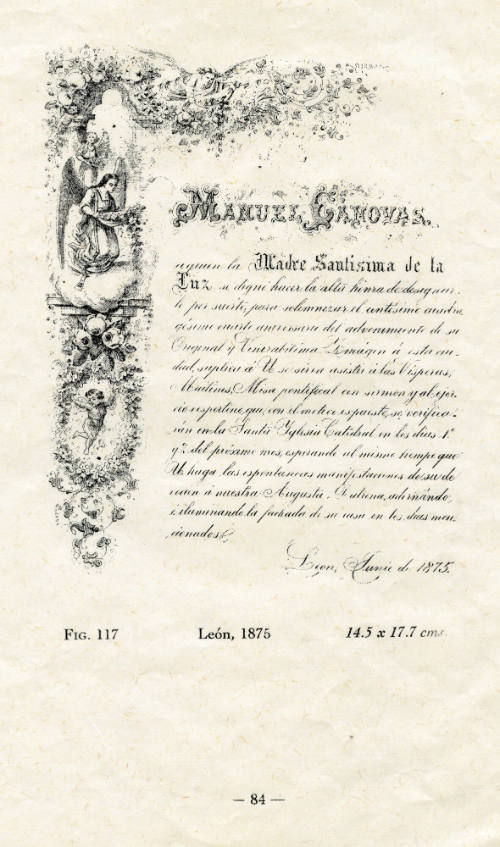 MANUEL CÁNOVAS.
á quien la Madre Santisima de la
Luz se dignó hacer la alta honra de designar-
le por suerte, para solemnizar el centésimo cuadra-
gésimo cuarto aniversario del advenimiento de su
Original y Venerabilima Imágen á esta ciu-
dad, suplica á U. se sirva asistir á las Visperas,
Maitines, Misa pontifical con sermon y al ejer-
cicio vespertino que, con el motivo expuesto, se verifica-
rán en la Santa Iglesia Catedral en los dias 1º
y 2 del próximo mes, esperando al mismo tiempo que
U. haga las espontaneas manifestaciones de su de-
vocion á nuestra Augusta Patrona, adornando
é iluminando la fachada de su casa en los dias men-
cionados.
Leon, Junio de 1875.
FIG. 117 León, 1875 14.5 x 17.7 cms.
— 84 —